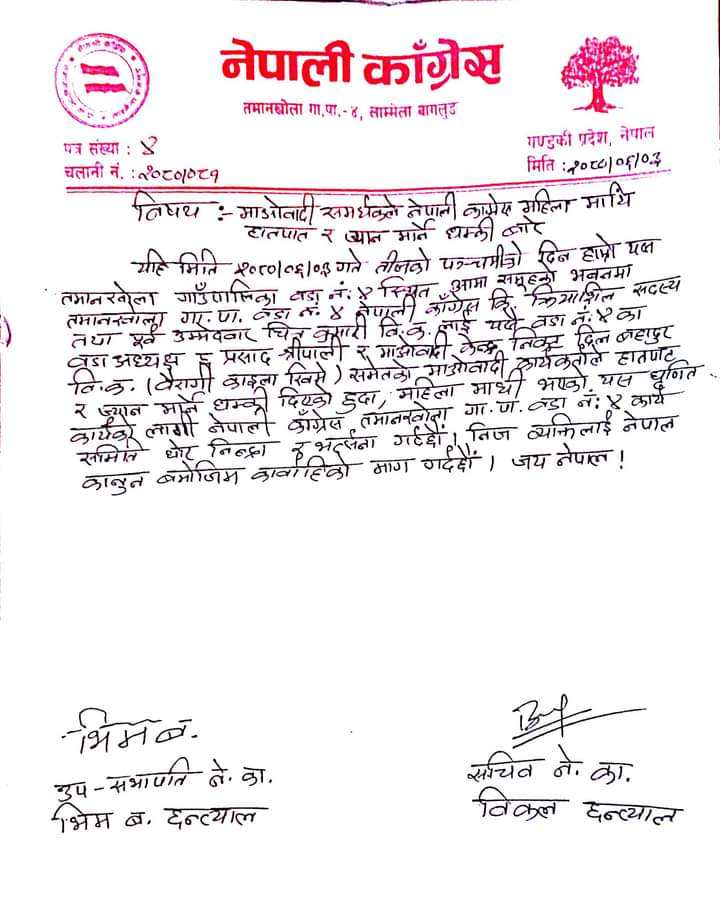 नेपाली काँग्रेस
तमानखोला गा.पा.-४, लाम्मेला बागलुङ
गण्डकी प्रदेश, नेपाल
पत्र संख्या : ४
चलानी नं. : २०८०/०८१
मिति : २०८०/०६/०३
विषय :- माओवादी समर्थकले नेपाली काँग्रेस महिला माथि
हातपात र ज्यान मार्ने धम्की बारे
यहि मिति २०८०/०६/०३ गते तीजको पञ्चमीको दिन हाम्रो यस
तमानखोला गाउँपालिका वडा नं: ४ स्थित आमा समूहको भवनमा
तमानखोला गा. पा. वडा नं. ४ नेपाली काँग्रेस कि क्रियाशिल सदस्य
तथा पूर्व उम्मेदवार चित्र कुमारी वि.क. लाई यसै वडा नं: ४ का
वडा अध्यक्ष प्रसाद श्रीपाली र माओवादी केन्द्र निकट दिल बहादुर
वि.क. (वैरागी काइला खिमे) समेतको माओवादी कार्यकर्ताले हातपात
र ज्यान मार्ने धम्की दिएको हुदा, महिला माथी भएको यस घृणित
कार्यको लागी नेपाली काँग्रेस तमानखोला गा. पा. वडा नं: ४ कार्य
समिति घोर निन्दा र भर्त्सना गर्दछौं । निज व्यक्तिलाई नेपाल
कानुन बमोजिम कार्वाहिको माग गर्दछौं । जय नेपाल !
भिम ब.
उप-सभापति ने. का.
सचिव ने. का.
भिम ब. छन्त्याल
विकल छन्त्याल